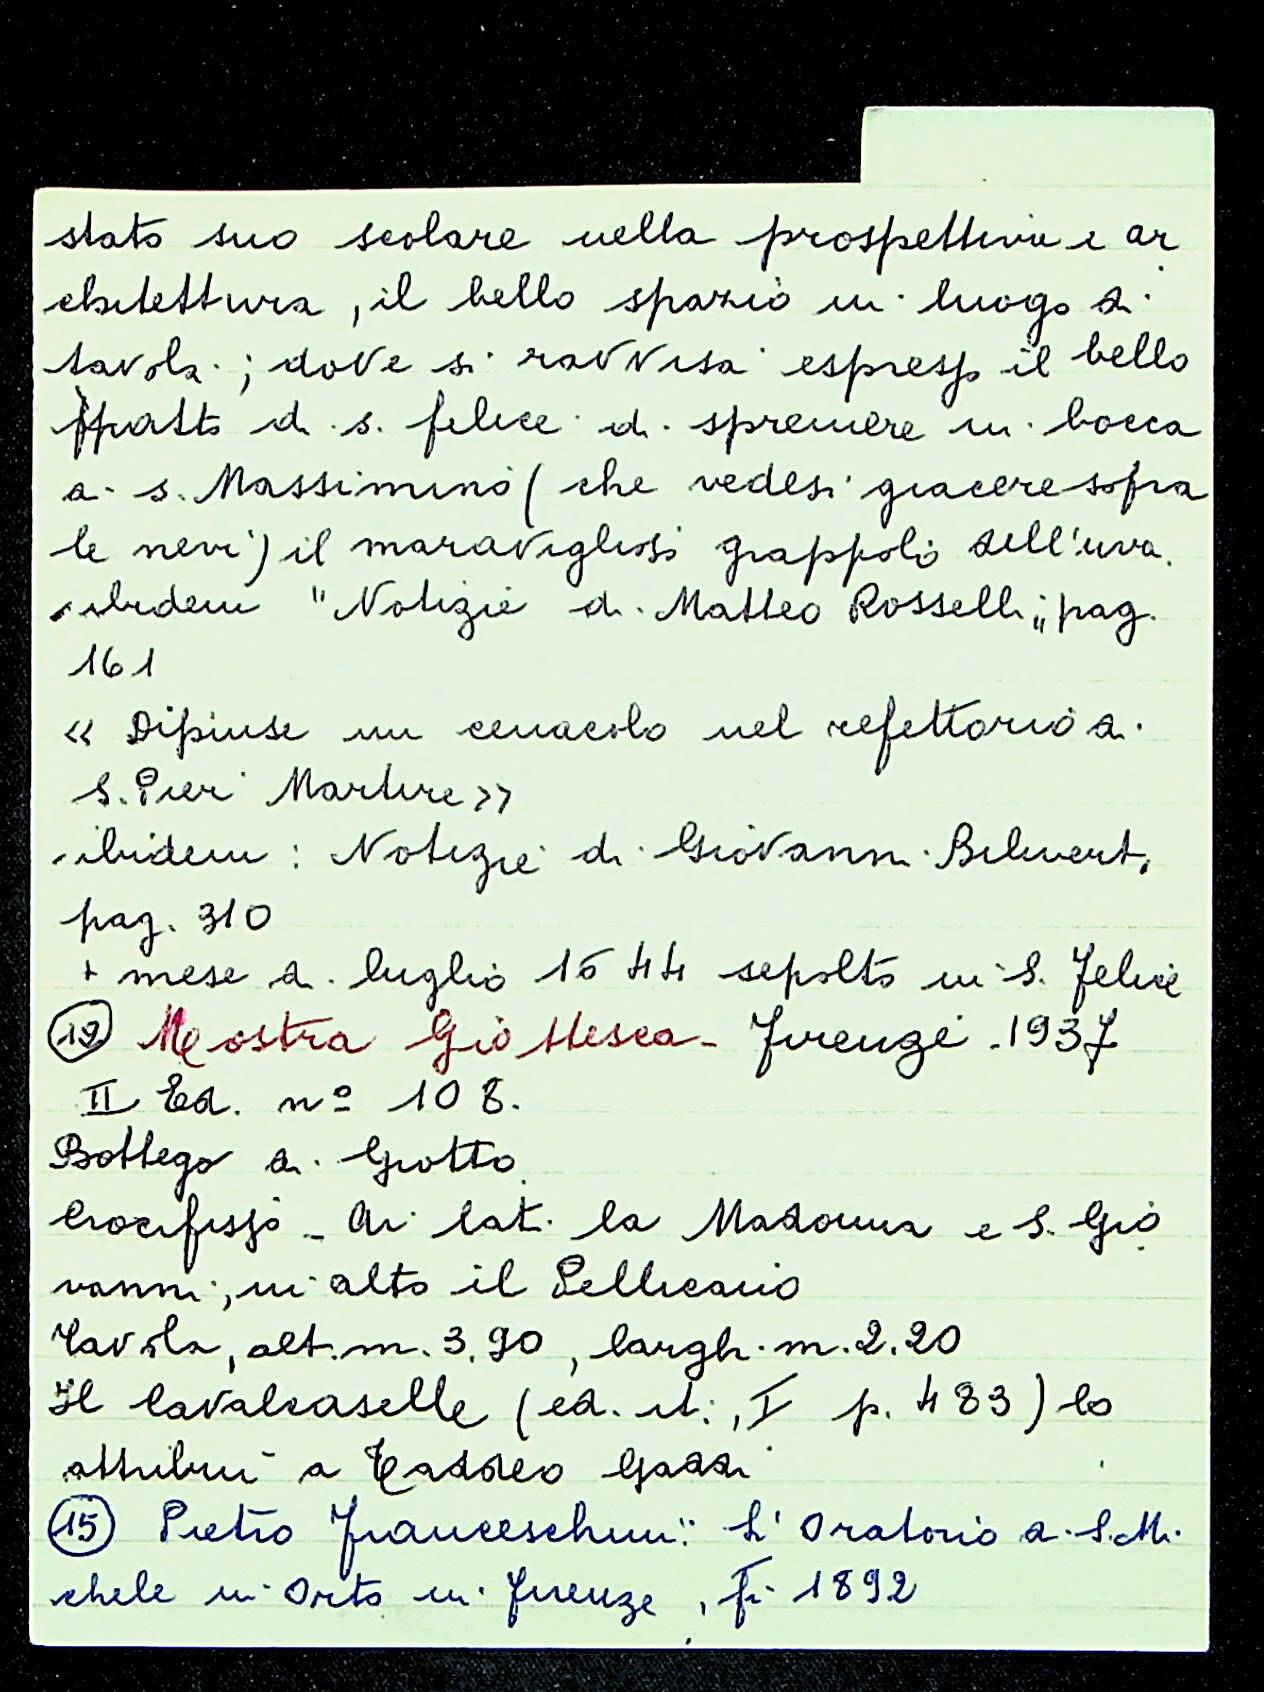 stato suo scolare nella prospettiva e ar
chitettura, il bello spazio in luogo di
tavola; dove si ravvisa espresso il bello
fatto di s. felice di spremere in bocca
a s. Massimino (che vedesi giacere sopra
le nevi) il maraviglioso grappolo dell'uva.
ibidem "Notizie di Matteo Rosselli" pag.
161
« Dipinse un cenacolo nel refettorio di
S. Pier Martire »
ibidem: Notizie di Giovanni Bilivert,
pag. 310
+ mese di luglio 1644 sepolto in S. Felice
(12) Mostra Giottesca - Firenze - 1937
II Ed. nº 108.
Bottega di Giotto
Crocifisso - Ai lati la Madonna e S. Gio
vanni, in alto il Pellicano
Tavola, alt. m. 3.90, largh. m. 2.20
Il Cavalcaselle (ed. it., I p. 483) lo
attribuì a Taddeo Gaddi
(15) Pietro Franceschini: L'Oratorio di S. Mi
chele in Orto in Firenze, Fi 1892